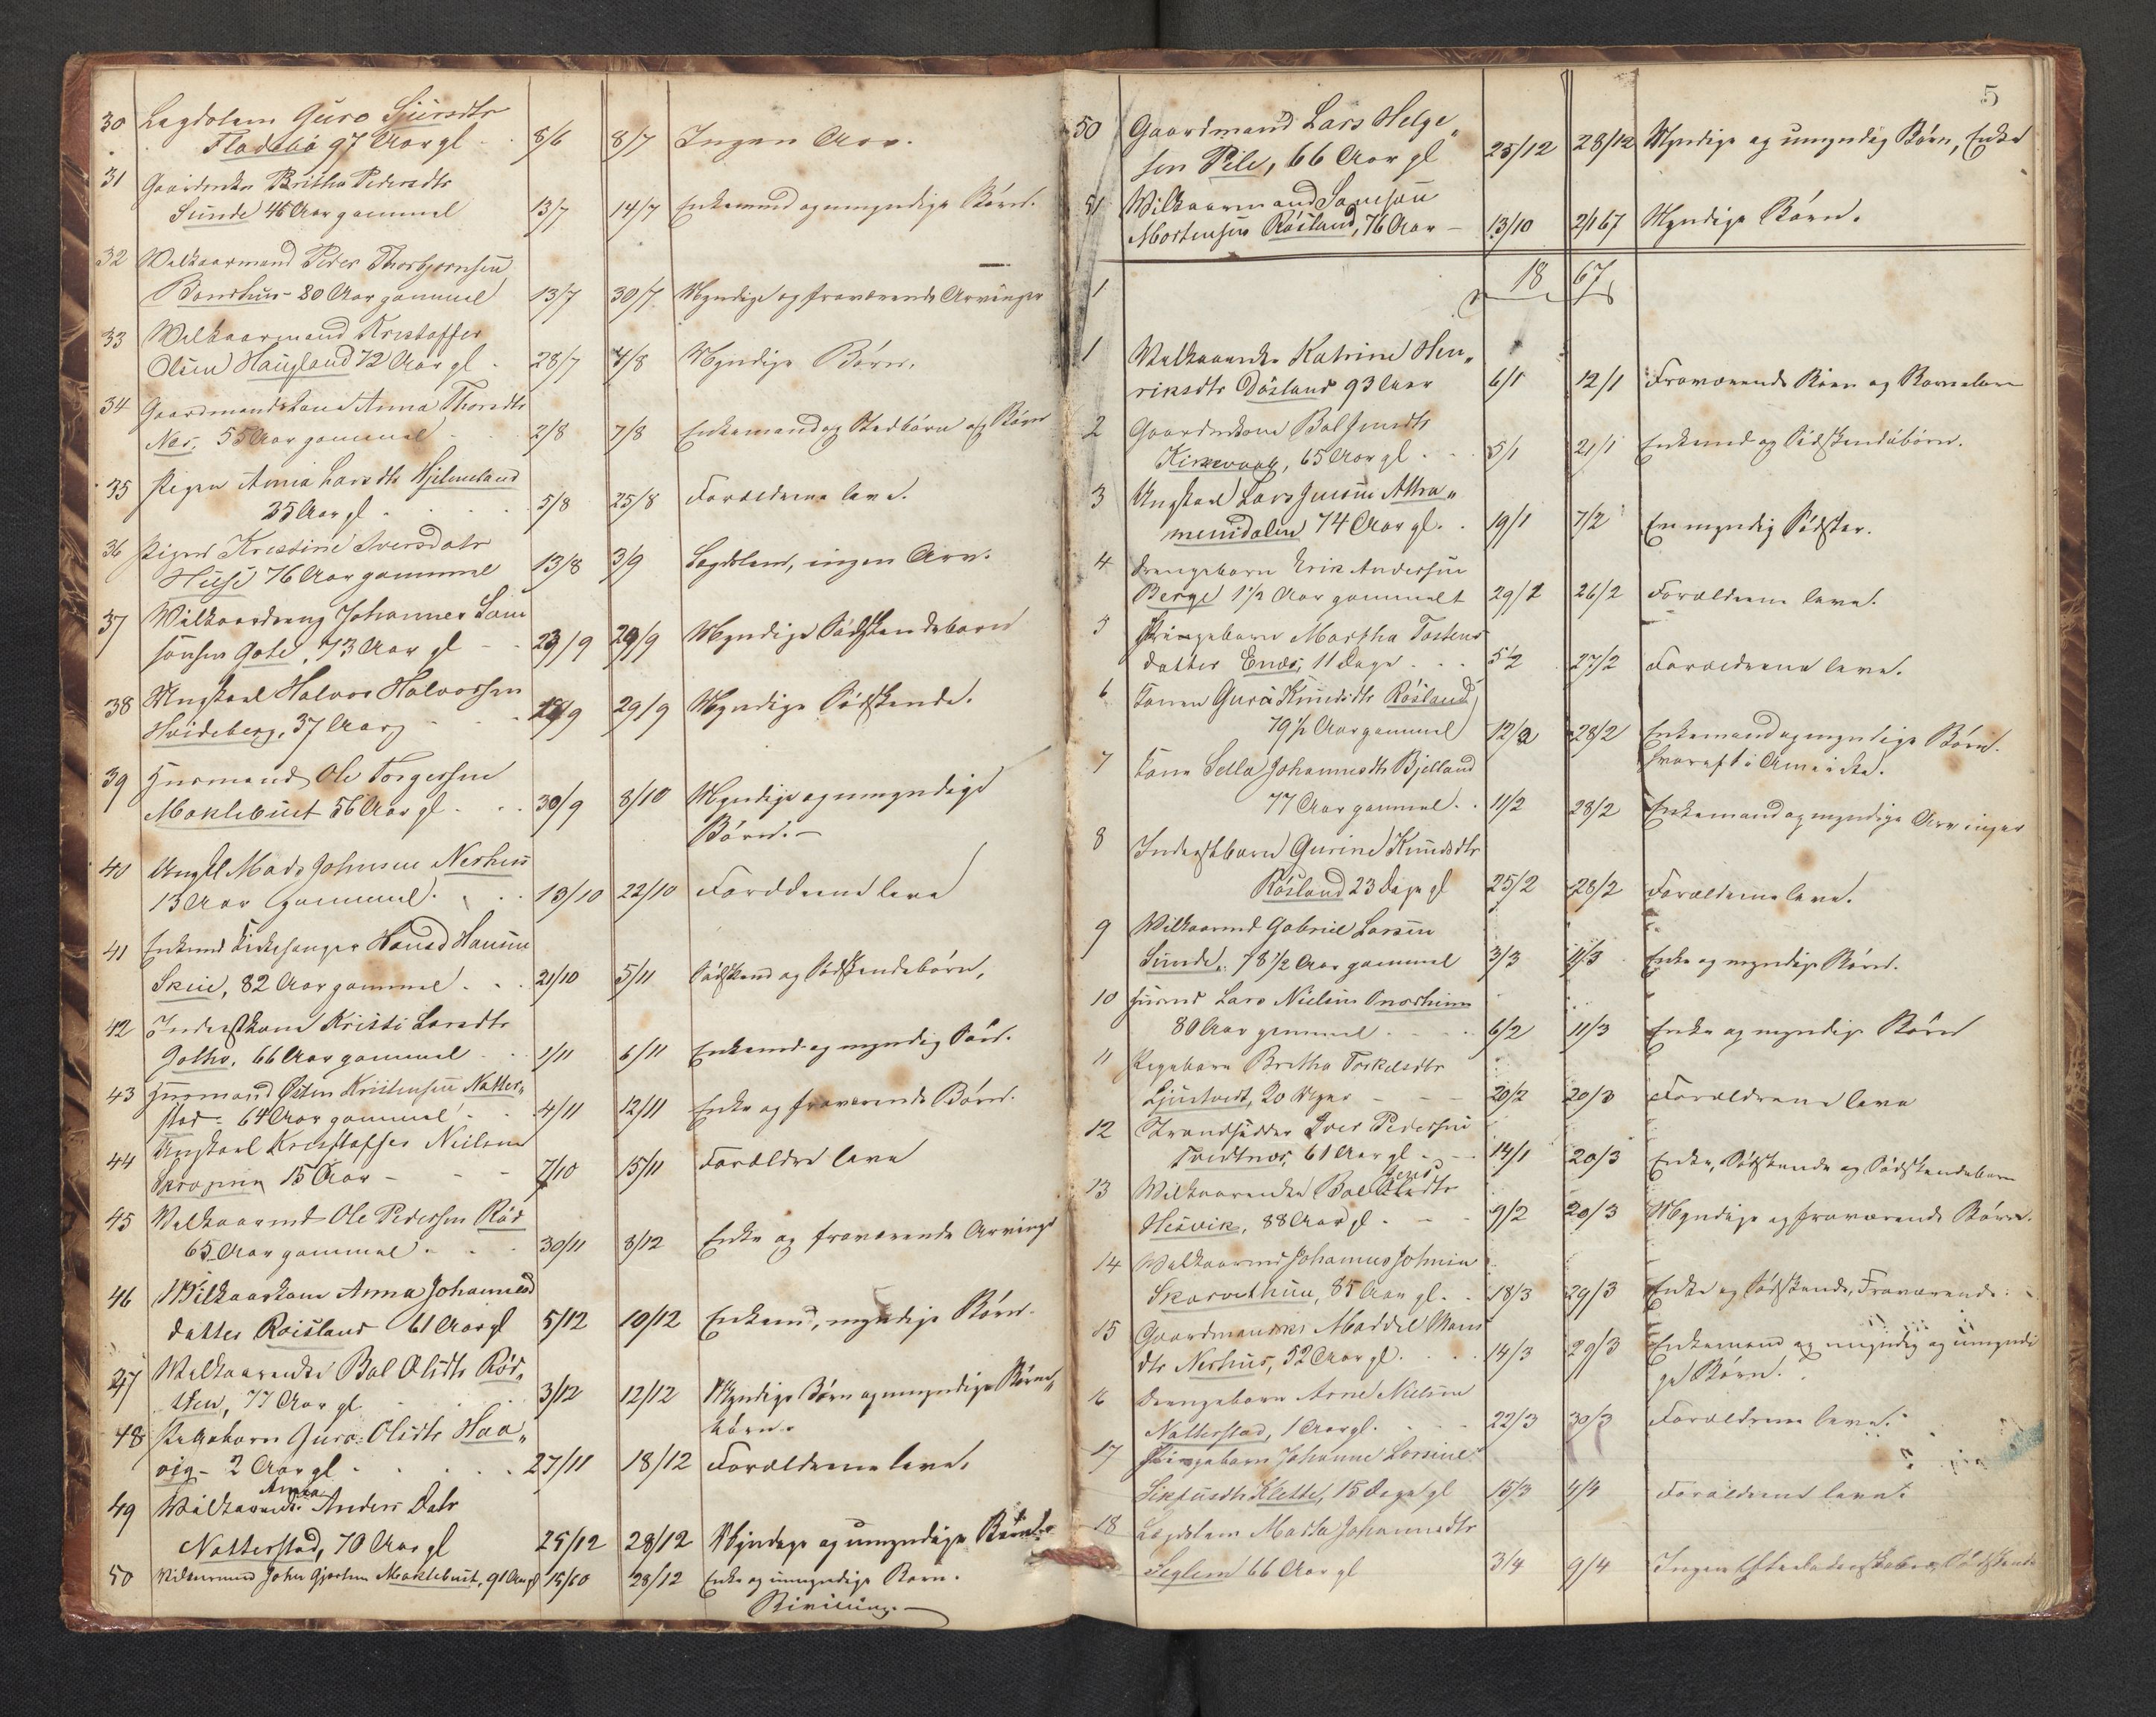 30 Lægdslem Guro Sjursdtr
Fladebø 97 Aar gl 8/6 8/7 Ingen Arv.
31 Gaardenke Britha Pedersdtr
Sunde 45 Aar gammel 13/7 14/7 Enkemand og umyndige Børn.
32 Vilkaarmand Peder Thorbjørnsen
Bondhus - 80 Aar gammel 13/7 30/7 Myndige og fraværende Arvinger
33 Vilkaarmand Kristoffer
Olsen Haugland 72 Aar gl 28/7 4/8 Myndige Børn.
34 Gaardmandskone Anna Thorsdtr
Næs, 55 Aar gammel 2/8 7/8 Enkemand og Stedbørn og Børn
35 Pigen Anna Larsdtr Hjelmeland
25 Aar gl 5/8 25/8 Forældrene leve.
36 Pigen Kristine Iversdatr
Huse 76 Aar gammel 13/8 3/9 Lægdslem, ingen Arv.
37 Vilkaardreng Johannes Sam
sonsen Gote, 73 Aar gl 23/9 29/9 Myndige Sødskendebørn
38 Ungkarl Halvor Halvorsen
Hvideberg, 37 Aar g 29/9 Myndige Sødskende.
39 Huusmand Ole Torgersen
Moklebust 56 Aar gl 30/9 8/10 Myndige og umyndige
Børn.
40 Ungkl Mads Johnsen Neshus
13 Aar gammel. 13/10 22/10 Forældrene leve
41 Enkemd Kirkesanger Hans Hansen
Skeie, 82 Aar gammel 21/10 5/11 Sødskend og Sødskendebørn,
42 Inderstkone Kristi Larsdtr
Jotho, 66 Aar gammel 1/11 6/11 Enkemd og myndig Søn.
43 Huusmand Østen Kristensen Natter„
stad - 64 Aar gammel 4/11 12/11 Enke og fraværende Børn.
44 Ungkarl Kristoffer Nielsen
15 Aar - 7/10 15/11 Forældre leve
45 Vilkaarmd Ole Pedersen Rød
65 Aar gammel 30/11 8/12 Enke og fraværende Arvinge
46 Vilkaarkone Anna Johannes
datter Røisland 61 Aar gl 5/12 10/12 Enkemd, myndige Børn.
47 Vilkaarenke Bol Olsdtr Rød„
sten, 77 Aar gl 3/12 12/12 Myndige Børn og umyndige Børne„
børn.
48 Pigebarn Guro Olsdtr Haa„
vig - 2 Aar gl 27/11 18/12 Forældrene leve.
Anna
49 Vilkaarenke Anders Datr
Natterstad, 70 Aar gl 25/12 28/12 Myndige og umyndige Børn
50 Vilkaarmand Johs Gjertsen Moklebust, 91 Aar gl 15/60 28/12 Enke og umyndige Børn.
5
50 Gaardmand Lars Helge„
sen Pile, 66 Aar gl 25/12 28/12 Myndige og umyndig Børn, Enke
51 Vilkaarmand Samson
Mortensen Røisland, 76 Aar - 13/10 2/1 67 Myndige Børn.
1 18 67
1 Vilkaarenke Katrine Hen„
riksdtr Døsland 93 Aar 6/1 12/1 Fraværende Børn og Børnebørn
2 Gaardkone Bol Jensdtr
Kirkevaag, 65 Aar gl 5/1 21/1 Enkemd og Sødskendebørn.
3 Ungkarl Lars Jensen Attra„
menidalen 74 Aar gl. 19/1 7/2 En myndig Søster.
4 Drengebarn Erik Andersen
Berge 1 1/2 Aar gammelt 29/1 26/2 Forældrene leve.
5 Pigebarn Martha Tostens
datter Enæs, 11 Dage 5/2 27/2 Forældrene leve.
6 Konen Guro Knudsdtr Røsland
79 1/2 Aar gammel 12/2 28/2 Enkemand og myndige Børn.
hvoraf i Amerika.
7 Kone Sella Johannesdtr Bjelland
77 Aar gammel. 11/2 28/2 Enkemand og myndige Arvinger
8 Inderstbarn Gurine Knudsdtr
Røsland 23 Dage gl 25/2 28/2 Forældrene leve.
9 Vilkaarmd Gabriel Larsen
Sunde, 78 1/2 Aar gammel 3/3 11/3 Enke og myndige Børn.
10 Huusmd Lars Nielsen
80 Aar gammel 6/2 11/3 Enke og myndige Børn
11 Pigebarn Britha Torkelsdtr
Ljustvedt, 20 Uger 20/2 20/3 Forældrene leve
12 Strandsidder Iver Pedersen
Tveitnæs, 61 Aar gl 14/1 20/3 Enke, Sødskende og Sødskendebørn
13 Vilkaarenke Bol Jensdtr
Hesvik, 88 Aar gl. 9/2 20/3 Myndige og fraværende Børn.
14 Vilkaarmd Johannes Johnsen
Skarvethun, 85 Aar gl. 18/3 29/3 Enke og Sødskende, Fraværende.
15 Gaardmandske Maddel Mons
dtr Neshus, 52 Aar gl. 14/3 29/3 Enkemand og myndig og umyndi
ge Børn.
16 Drengebarn Arne Nielsen
Natterstad, 1 Aar gl. 22/3 30/3 Forældrene leve.
17 Pigebarn Johanne Larsine
Klette, 15 Dage gl 15/3 4/4 Forældrene leve.
18 Lægdslem Marta Johannesdtr
Teglem 66 Aar gl 3/4 9/4 Ingen Sødskende